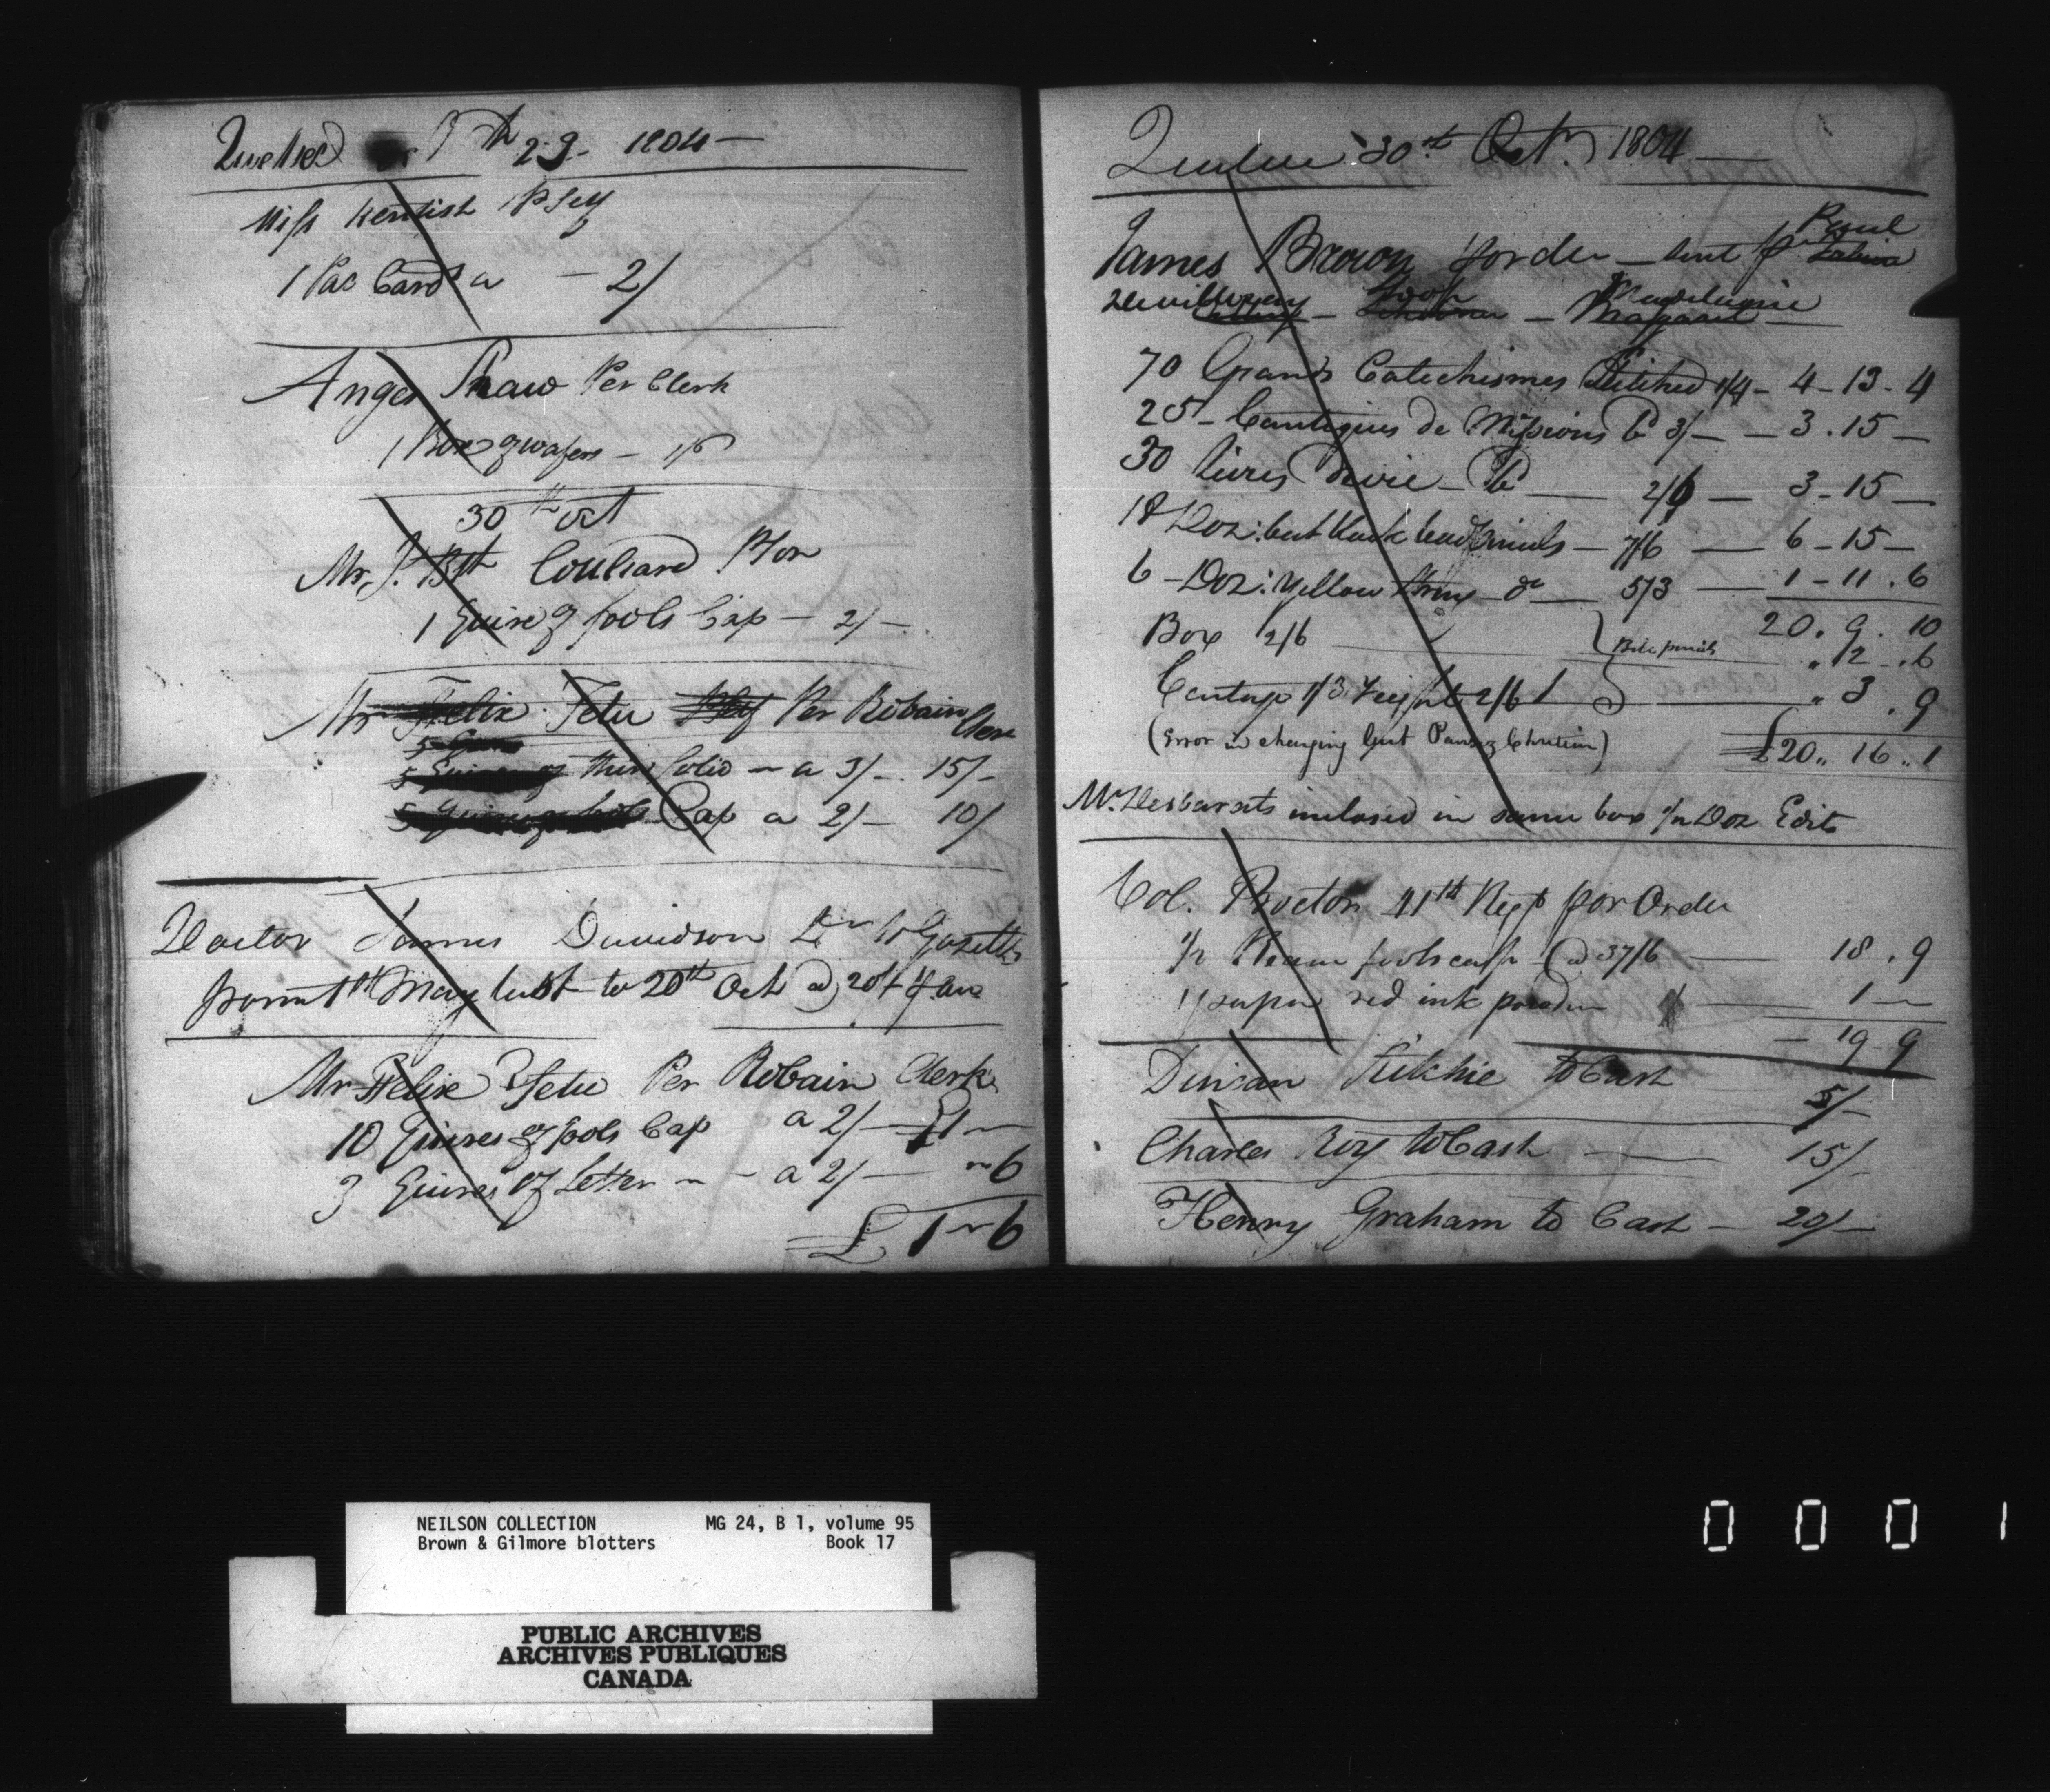 Quebec 29 1804 —
Miss Kentish P Self
1 Pac Cards a — 2/
Anges Shaw Per Clerk
1 Box of wafers — 1/6
30th Oct
Mr. J. Bst Couliard Por
1 Quire of fools Cap — 2/ —
Mr Felix Tetu Self Per Robain Clerk
5 Quires of thin folio — a 3/ — 15/ —
5 Quires of fools Cap a 2/ — 10/
Doctor James Davidson Dr to Gazette
from 1st May last to 20th Oct @ 20/ p an
Mr Felix Tetu Per Robain Clerk
10 Quires of fools Cap a 2/ — £1 —
3 Quires of Letter — — a 2/ — — 6
£ 1 — 6
Quebec 30th Octr 1804 —
James Brown p order — sent p
Madelaine
Schooner — Margaret —
70 Grands Catechismes Stitched 1/4 — 4 — 13 . 4
25 — Cantiques de Missions b 3/ — — 3 . 15 —
30 Livres de vie — b — 2/6 — 3 — 15 —
18 Doz: best black lead Pencils — 7/6 — 6 — 15 —
6 — Doz: Yellow do — 5/3 — 1 — 11 . 6
20 . 9 . 10
Box 2/6 " 2 — . 6
Cartage 1/3 Freight 2/6 " 3 . 9
(Error in charging last Pensez y Chretien)
£20 " 16 " 1
Mr Desbarats inclosed in same box 1/2 Doz Edits
Col. Proctor 41st Regt por Order
1/2 Ream foolscap @ 37/6 — 18 . 9
1 paper red ink powder — 1 —
— 19 9
Duncan Ritchie to Cash 5/ —
Charles Roy to Cash — 15/
Henry Graham to Cash — 20/ —
NEILSON COLLECTION MG 24, B 1, volume 95
Brown & Gilmore blotters Book 17
PUBLIC ARCHIVES
ARCHIVES PUBLIQUES
CANADA
0 0 0 1